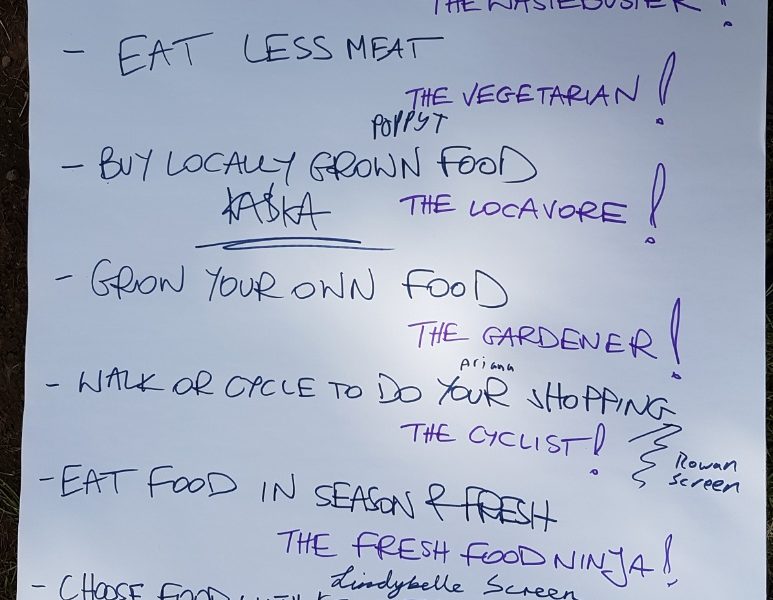 THE WASTEBUSTER!
- EAT LESS MEAT
THE VEGETARIAN!
POPPY T
- BUY LOCALLY GROWN FOOD
KASKA
THE LOCAVORE!
- GROW YOUR OWN FOOD
THE GARDENER!
Ariana
- WALK OR CYCLE TO DO YOUR SHOPPING
THE CYCLIST!
Rowan
Screen
- EAT FOOD IN SEASON & FRESH
THE FRESH FOOD NINJA!
Lindybelle Screen
- CHOOSE FOOD